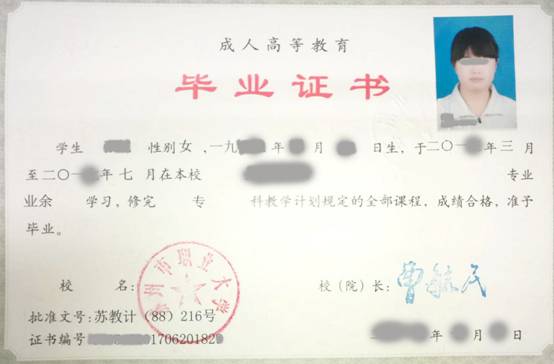 成人高等教育
毕业证书
学生 性别女,一九 年 月 日生,于二〇一 年三月
至二〇一 年七月在本校 专业
业余 学习,修完 专 科教学计划规定的全部课程,成绩合格,准予
毕业。
校 名: 州市职业大学
校(院)长:
批准文号:苏教计(88)216号
证书编号 170620182
年 月 日